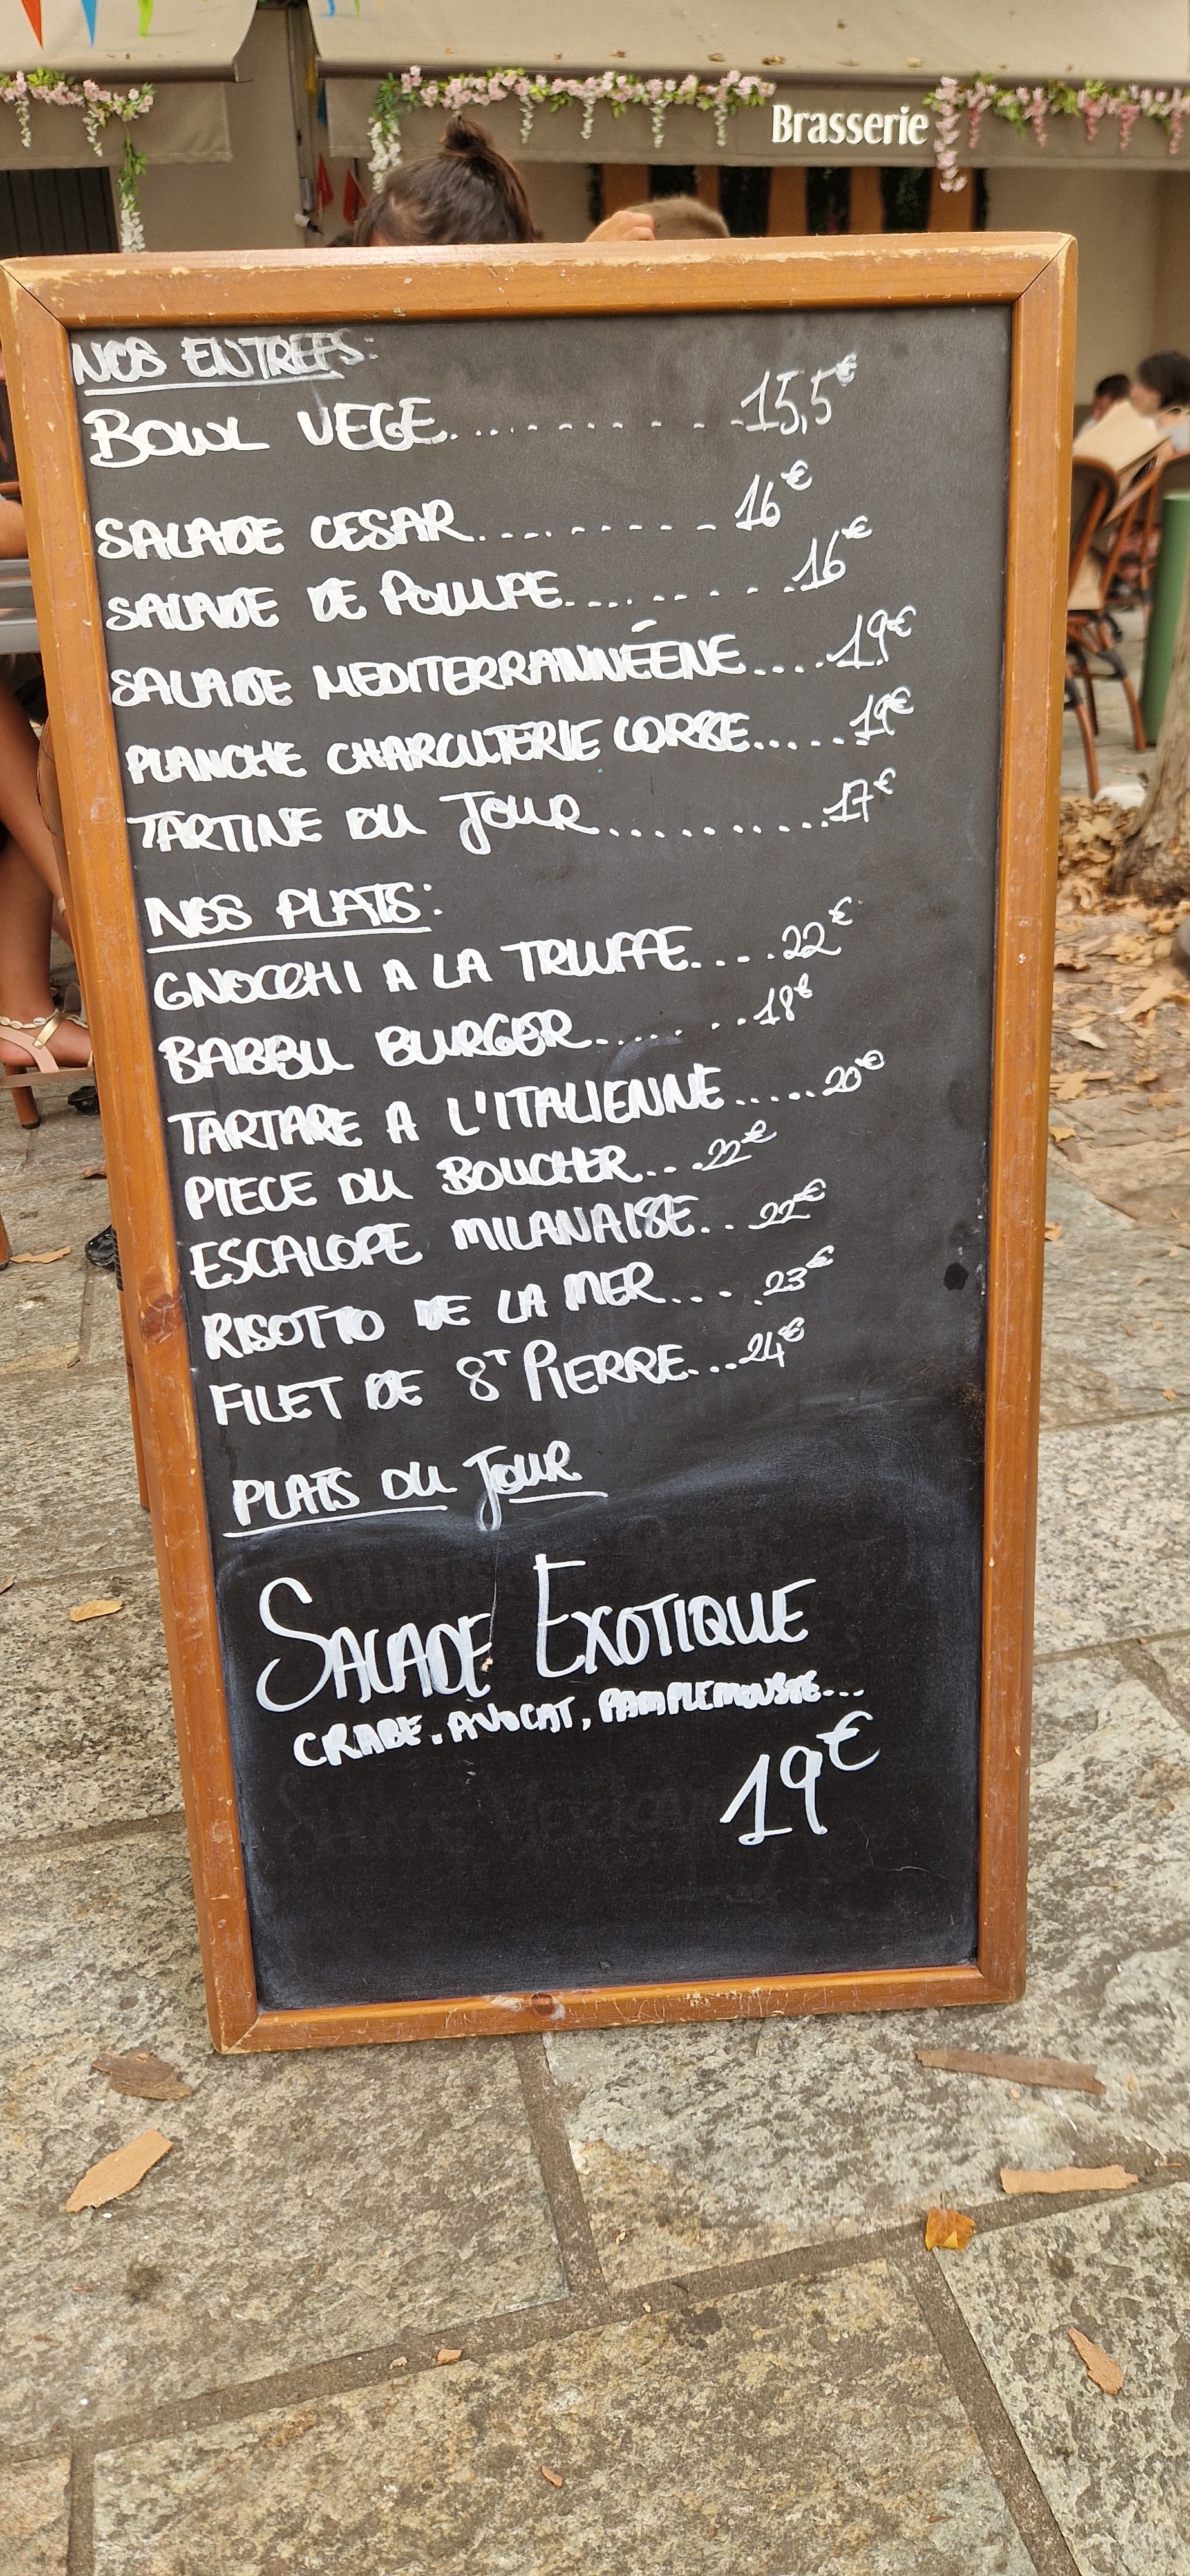 Brasserie
NOS ENTREES:
BOWL VEGE............15,5€
SALADE CESAR...........16€
SALADE DE POULPE..........16€
SALADE MEDITERRANNÉENE.....19€
PLANCHE CHARCUTERIE CORSE......19€
TARTINE DU JOUR...........17€
NOS PLATS:
GNOCCHI A LA TRUFFE.....22€
BABBU BURGER........18€
TARTARE A L'ITALIENNE.....20€
PIECE DU BOUCHER....22€
ESCALOPE MILANAISE...22€
RISOTTO DE LA MER.....23€
FILET DE ST PIERRE....24€
PLATS DU JOUR
SALADE EXOTIQUE
CRABE, AVOCAT, PAMPLEMOUSSE...
19€